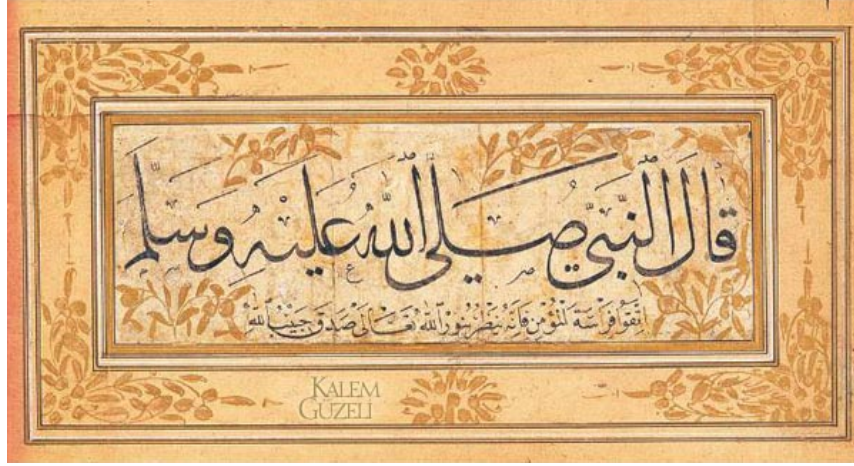 قال النبي صلى الله عليه وسلم
اتقوا فراسة المؤمن فإنه ينظر بنور الله تعالى صدق حبيب الله
KALEM
GÜZELİ